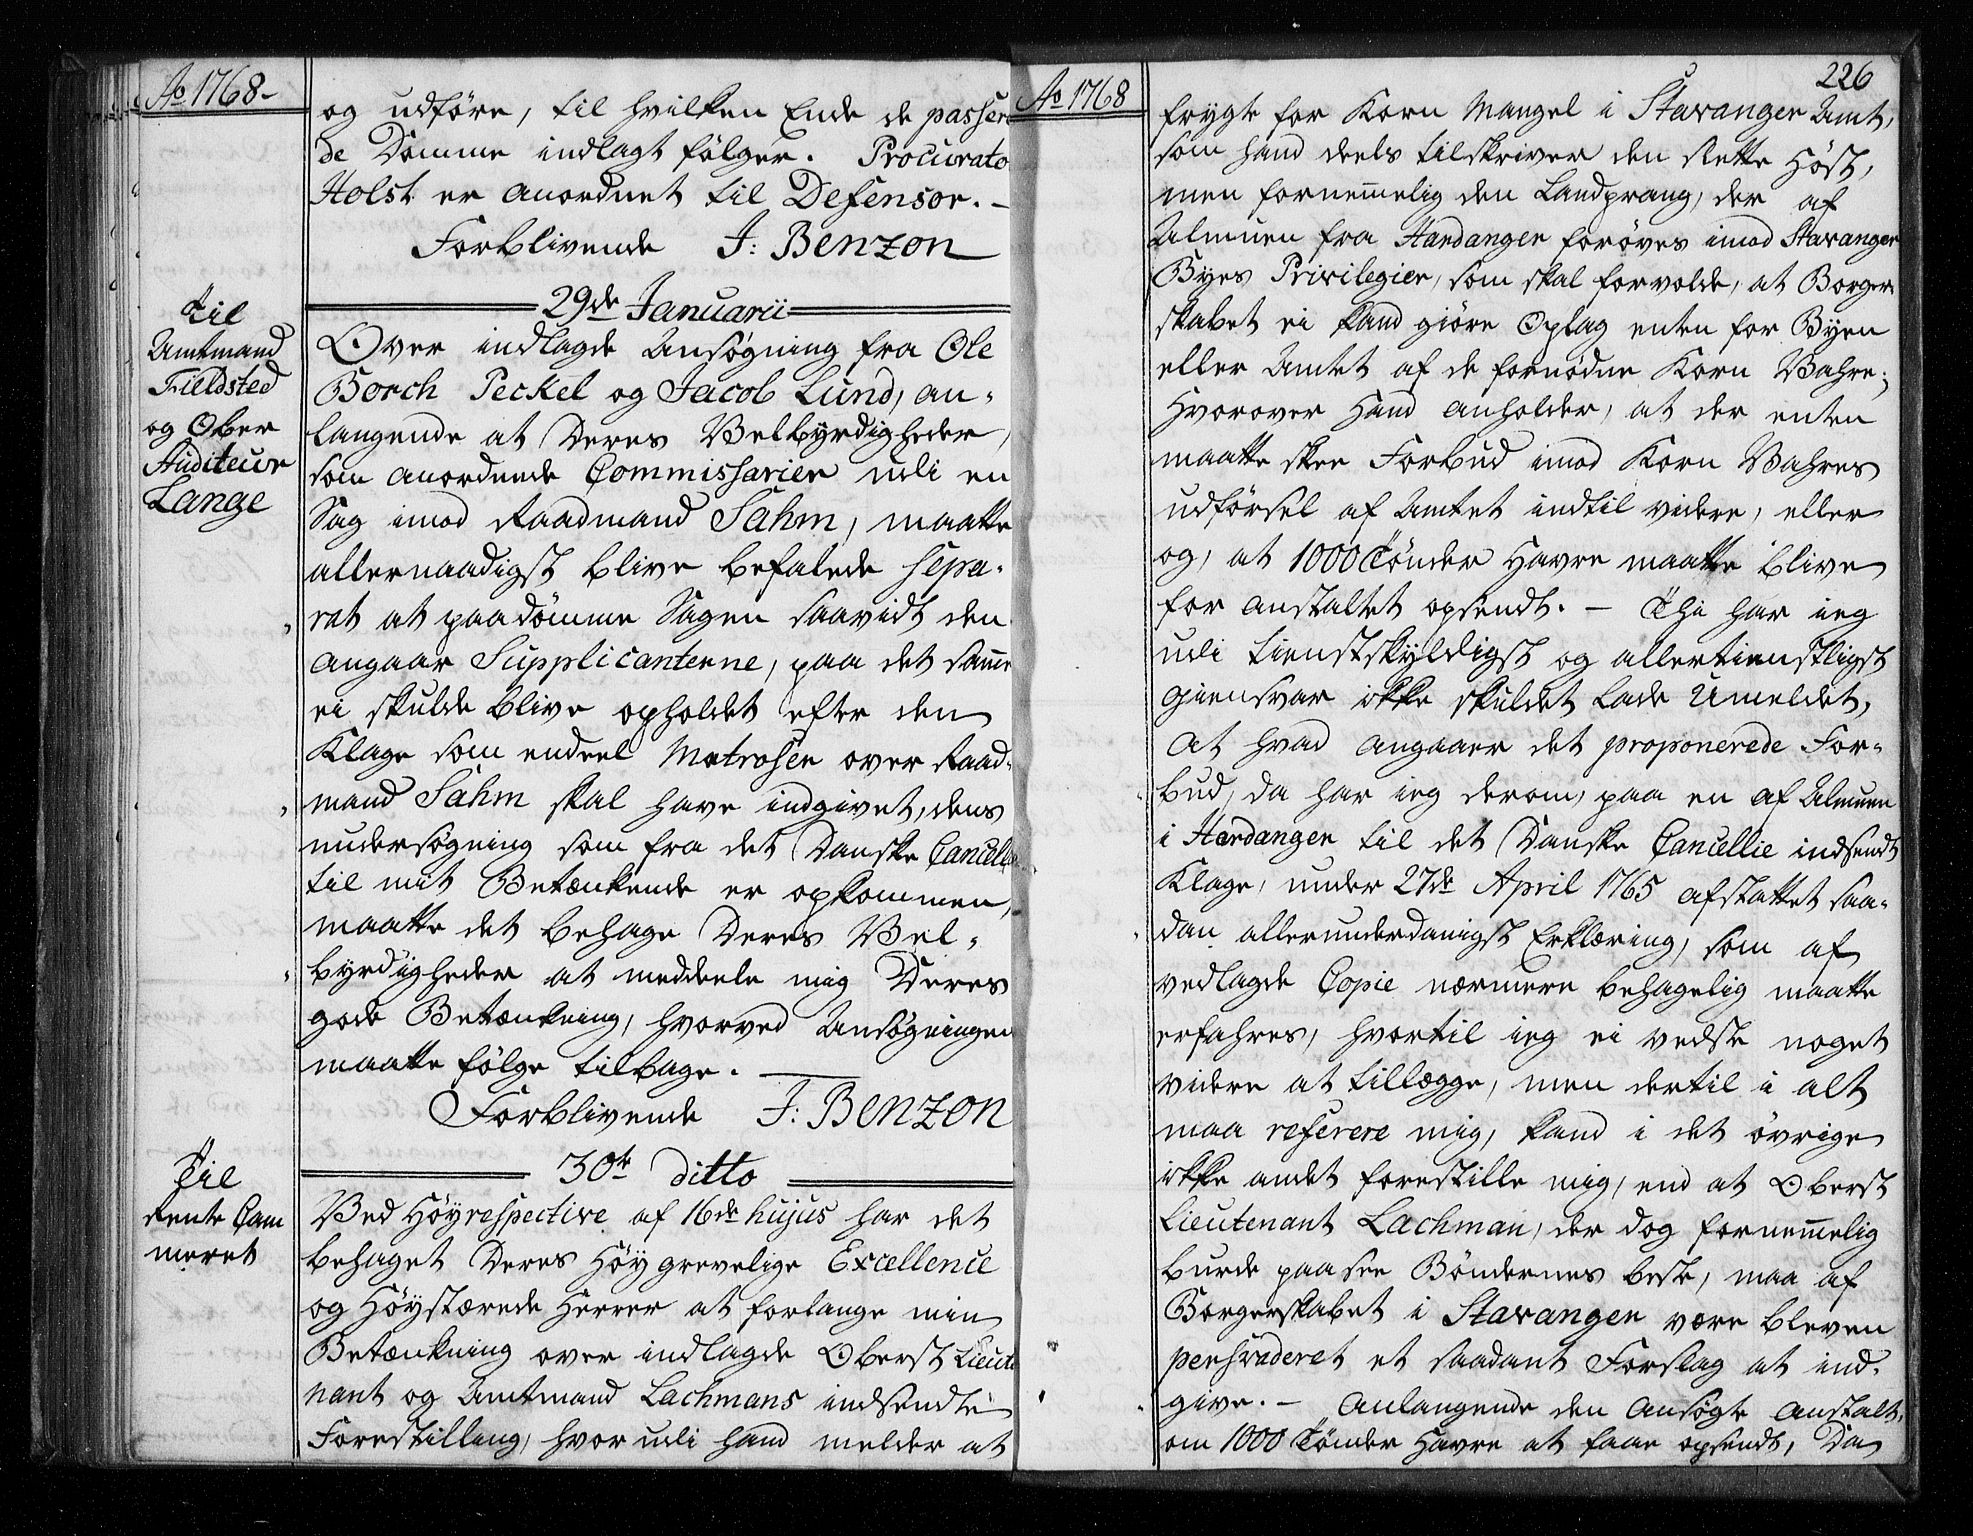 Ao 1768-
og udföre, til hvilken Ende de passeren
de Domme indlagt fölger. Procurato
Holst er anordnet til Defensor. -
Forblivende J: Benzon
29de Januarii
Til
Amtmand
Fieldsted
og Ober
Auditeur
Lange
Over indlagde Ansøgning fra Ole
Borch Peckel og Jacob Lund, an-
langende at Deres Velbyrdigheder,
som anordnede Commissarier udi en
Sag imod Raadmand Sahm, maatte
allernaadigst blive befalede sepa-
rat at paadömme Sagen saavidt den
angaar Supplicanterne, paa det samme
ei skulde blive opholdet efter den
Klage som endeel Matroser over Raad-
mand Sahm skal have indgivet, dens
undersøgning som fra det Danske Cancelli
til mit Betænkende er opkommen,
maatte det behage Deres Vel-
byrdigheder at meddeele mig Deres
gode Betænkning, hvorved Ansøgningen
maatte fölge tilbage.
Forblivende J: Benzon
30te ditto
Til
Rente Cam
meret
Ved Höyrespective af 16de hujus har det
behaget Deres Höygrevelige Excellence
og Höystærede Herrer at forlange min
Betænkning over indlagde Oberst Lieute
nant og Amtmand Lachmans indsendte
Forestilling, hvor udi hand melder at
Ao 1768
226
frygte for Korn Mangel i Stavanger Amt,
som hand deels tilskriver den slette Höst,
men fornemmelig den Landprang, der af
Almuen fra Hardanger forøves imod Stavanger
Byes Privilegier, som skal forvolde, at Borger-
skabet ei kand giöre Oplag enten for Byen
eller Amtet af de fornødne Korn Vahre;
Hvorover Hand anholder, at der enten
maatte skee Forbud imod Korn Vahres
udförsel af Amtet indtil videre, eller
og, at 1000 Tönder Havre maatte blive
foranstaltet opsendt. - Thi har ieg
udi tienstskyldigst og allertienstligst
giensvar ikke skuldet lade Umeldet,
at hvad angaaer det proponerede For-
bud, da har ieg derom, paa en af Almuen
i Hardanger til det Danske Cancellie indsendt
Klage, under 27de April 1765 afstattet saa-
dan allerunderdanigst Erklæring, som af
vedlagde Copie nærmere behagelig maatte
erfahres, hvortil ieg ei vedste noget
videre at tillægge, men dertil i alt
maa referere mig, kand i det övrige
ikke andet forestille mig, end at Oberst
Lieutenant Lachman, der dog fornemmelig
burde paasee Böndernes beste, maa af
Borgerskabet i Stavanger være bleven
persvaderet et saadant Forslag at ind-
give. - Anlangende den Ansøgte Anstalt,
om 1000 Tønder Havre at faae opsendt, Da